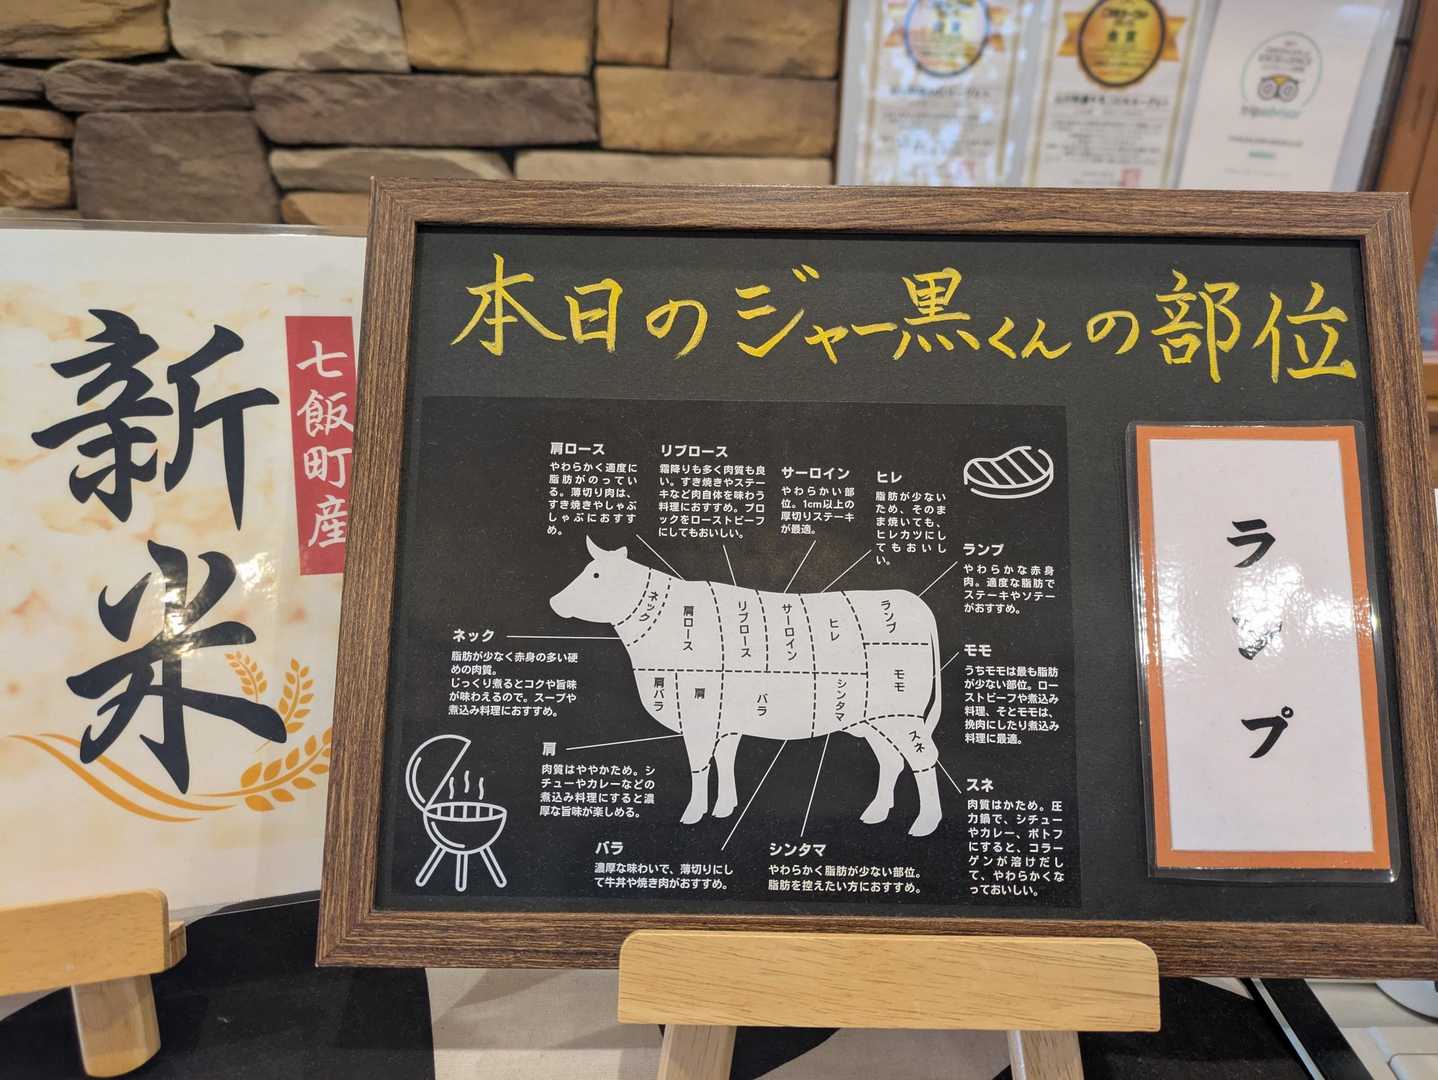 新米
七飯町産
本日のジャー黒くんの部位
肩ロース
やわらかく適度に
脂肪がのってい
る。薄切り肉は、
すき焼きやしゃぶ
しゃぶにおすす
め。
リブロース
霜降りも多く肉質も良
い。すき焼きやステー
キなど肉自体を味わう
料理におすすめ。ブロ
ックをローストビーフ
にしてもおいしい。
サーロイン
やわらかい部
位。1cm以上の
厚切りステーキ
が最適。
ヒレ
脂肪が少ない
ため、そのま
ま焼いても、
ヒレカツにし
てもおいし
い。
ランプ
やわらかな赤身
肉。適度な脂肪で
ステーキやソテー
がおすすめ。
ネック
脂肪が少なく赤身の多い硬
めの肉質。
じっくり煮るとコクや旨味
が味わえるので。スープや
煮込み料理におすすめ。
モモ
うちモモは最も脂肪
が少ない部位。ロー
ストビーフや煮込み
料理、そとモモは、
挽肉にしたり煮込み
料理に最適。
肩
肉質はややかため。シ
チューやカレーなどの
煮込み料理にすると濃
厚な旨味が楽しめる。
スネ
肉質はかため。圧
力鍋で、シチュー
やカレー、ポトフ
にすると、コラー
ゲンが溶けだし
て、やわらかくな
っておいしい。
バラ
濃厚な味わいで、薄切りにし
て牛丼や焼き肉がおすすめ。
シンタマ
やわらかく脂肪が少ない部位。
脂肪を控えたい方におすすめ。
ネック
肩ロース
リブロース
サーロイン
ヒレ
ランプ
モモ
肩バラ
肩
バラ
シンタマ
スネ
ランプ
金賞
tripadvisor